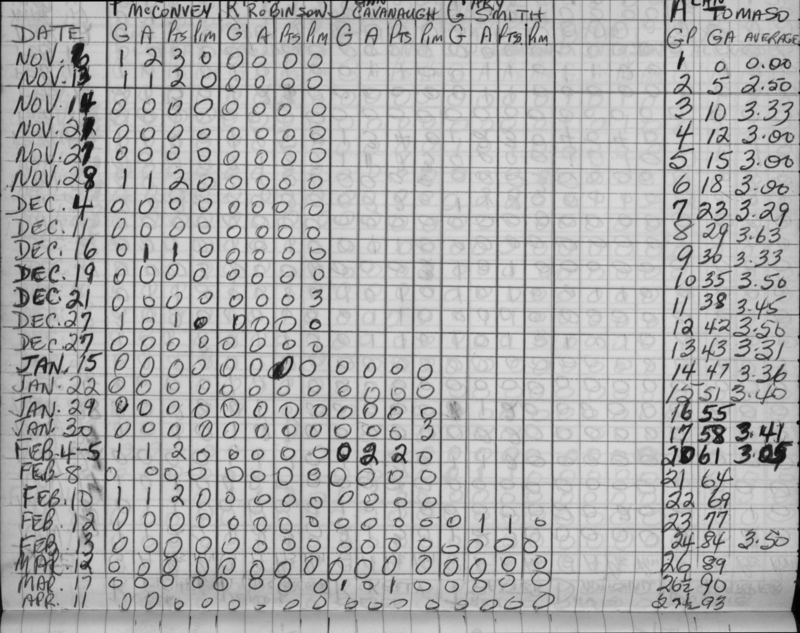 McCONVEY R ROBINSON J CAVANAUGH G SMITH A TOMASO
DATE G A Pts Pim G A Pts Pim G A Pts Pim G A Pts Pim GP GA AVERAGE
NOV. 6 1 2 3 0 0 0 0 0 1 0 0.00
NOV. 13 1 1 2 0 0 0 0 0 2 5 2.50
NOV. 14 0 0 0 0 0 0 0 0 3 10 3.33
NOV. 21 0 0 0 0 0 0 0 0 4 12 3.00
NOV. 27 0 0 0 0 0 0 0 0 5 15 3.00
NOV. 28 1 1 2 0 0 0 0 0 6 18 3.00
DEC. 4 0 0 0 0 0 0 0 0 7 23 3.29
DEC. 11 0 0 0 0 0 0 0 0 8 29 3.63
DEC. 16 0 1 1 0 0 0 0 0 9 30 3.33
DEC. 19 0 0 0 0 0 0 0 0 10 35 3.50
DEC. 21 0 0 0 0 0 0 0 3 11 38 3.45
DEC. 27 1 0 1 0 0 0 0 0 12 42 3.50
DEC. 27 0 0 0 0 0 0 0 0 13 43 3.31
JAN. 15 0 0 0 0 0 0 0 0 0 0 0 0 14 47 3.36
JAN. 22 0 0 0 0 0 0 0 0 0 0 0 0 15 51 3.40
JAN. 29 0 0 0 0 0 0 0 0 0 0 0 0 16 55
JAN. 30 0 0 0 0 0 0 0 0 0 0 0 3 17 58 3.41
FEB. 4-5 1 1 2 0 0 0 0 0 0 2 2 0 20 61 3.05
FEB. 8 0 0 0 0 0 0 0 0 0 0 0 0 21 64
FEB. 10 1 1 2 0 0 0 0 0 0 0 0 0 22 69
FEB. 12 0 0 0 0 0 0 0 0 0 0 0 0 0 1 1 0 23 77
FEB. 13 0 0 0 0 0 0 0 0 0 0 0 0 0 0 0 0 24 84 3.50
MAR. 12 0 0 0 0 0 0 0 0 0 0 0 0 0 0 0 0 26 89
MAR. 17 0 0 0 0 0 0 0 0 1 0 1 0 0 0 0 0 26½ 90
APR. 11 0 0 0 0 0 0 0 0 0 0 0 0 0 0 0 0 27½ 93